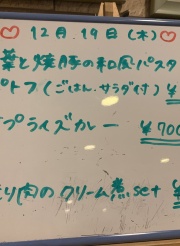 ♡ 12月.19日(木) ♡
葉と焼豚の和風パスタ
プトフ(ごはん.サラダ付) ¥
プライズカレー
¥700
り肉のクリーム煮set ¥